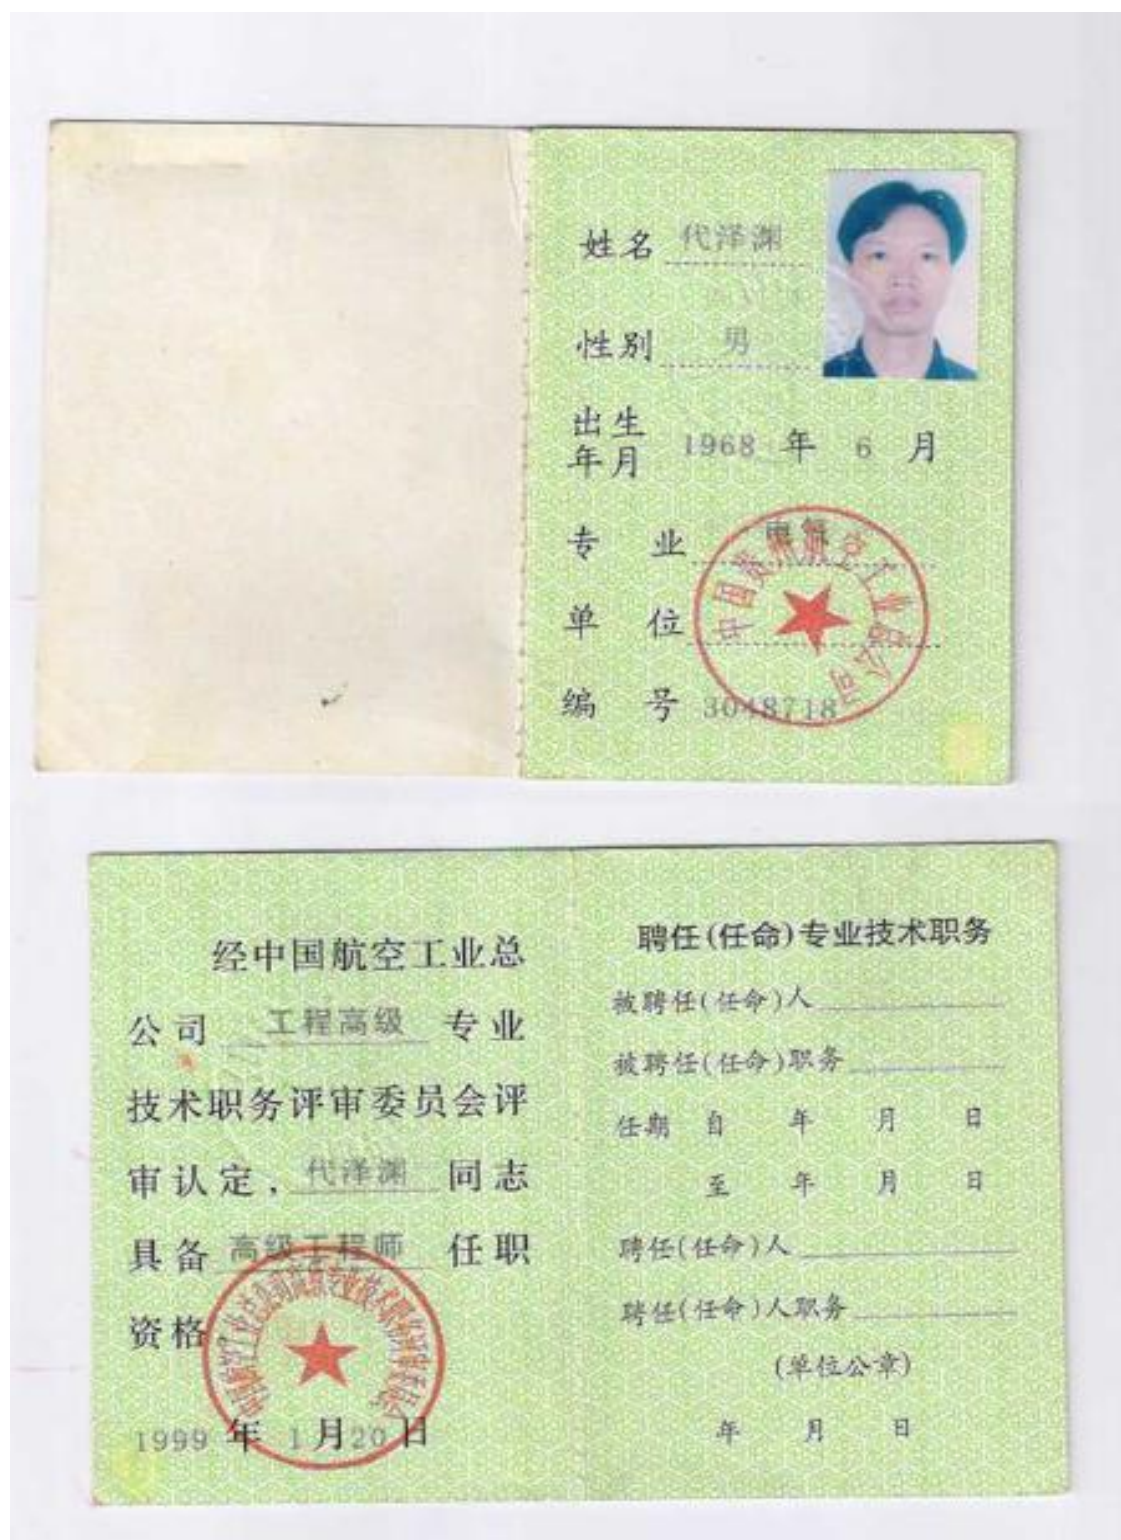 姓名 代泽渊
性别 男
出生年月 1968 年 6 月
专业 电气
中国贵州航空工业总公司
单位
编号 3048718
经中国航空工业总
公司 工程高级 专业
技术职务评审委员会评
审认定，代泽渊 同志
具备 高级工程师 任职
资格
1999 年 1 月 20 日
聘任(任命)专业技术职务
被聘任(任命)人
被聘任(任命)职务
任期 自 年 月 日
至 年 月 日
聘任(任命)人
聘任(任命)人职务
(单位公章)
年 月 日